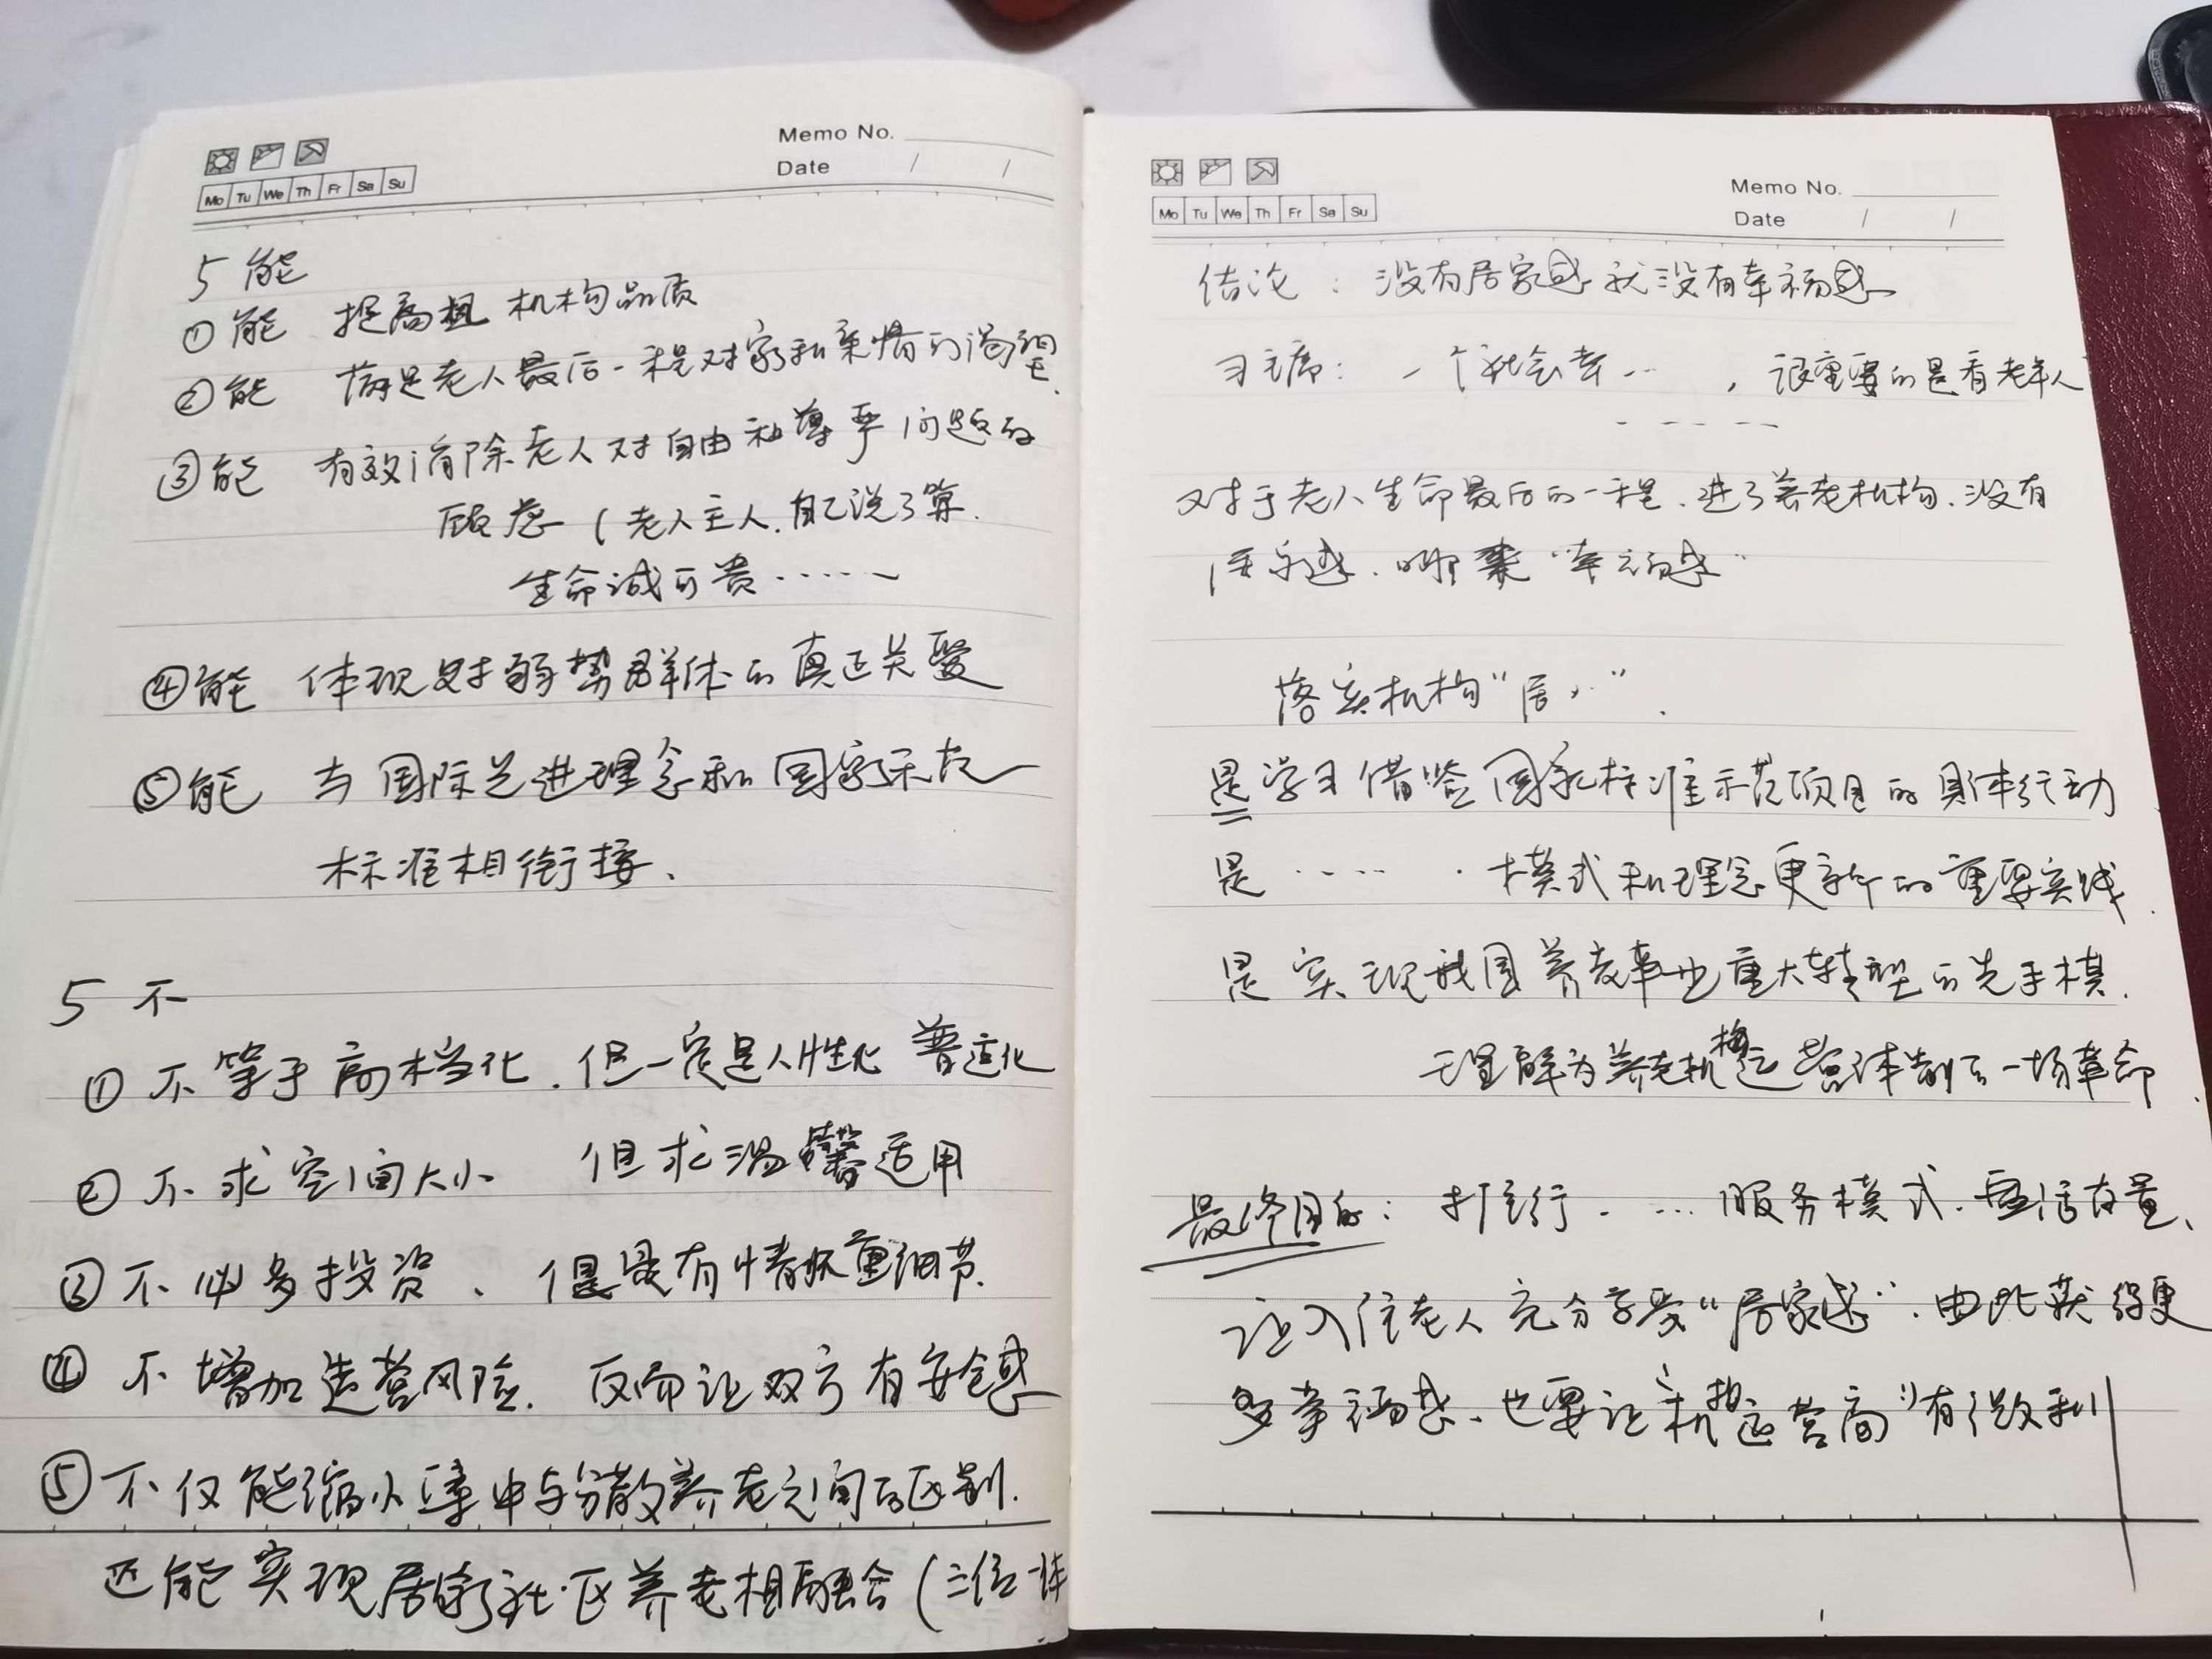 Memo No.
Mo Tu We Th Fr Sa Su
Date / /
5 能
①能 提高 机构品质
②能 满足老人最后一程对家和亲情的渴望.
③能 有效消除老人对自由和尊严问题的
顾虑 (老人主人.自己说了算.
生命诚可贵……
④能 体现对弱势群体的真正关爱
⑤能 与国际先进理念和国家示范
标准相衔接、
5 不
① 不等于高档化.但一定是人性化 普适化
② 不求空间大小 但求温馨适用
③ 不必多投资、但是有情怀重细节.
④ 不增加运营风险. 反而让双方有安全感
⑤ 不仅能缩小集中与分散养老之间的区别.
还能实现居家社区养老相融合(三位一体
Memo No.
Mo Tu We Th Fr Sa Su
Date / /
结论: 没有居家感就没有幸福感
习主席: 一个社会幸… , 很重要的是看老年人
……
对于老人生命最后的一程.进了养老机构.没有
居家感.哪来"幸福感"
落实机构"居.."
是学习借鉴国家标准示范项目的具体行动
是 …… 模式和理念更新的重要实践.
是实现我国养老事业重大转型的先手棋.
理解为养老机构运营体制的一场革命.
最终目的: 推行.…服务模式.盘活存量、
让入住老人充分享受"居家感".由此获得更
多幸福感.也要让"机构运营商"有微利